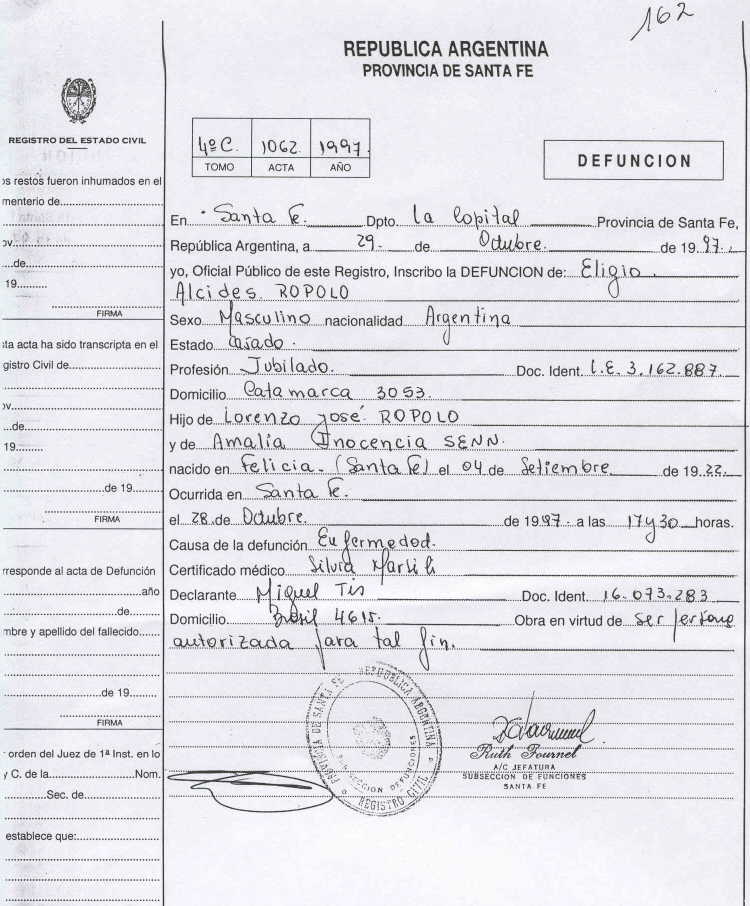 162
REPUBLICA ARGENTINA
PROVINCIA DE SANTA FE
REGISTRO DEL ESTADO CIVIL
4º C. 1062 1997.
TOMO ACTA AÑO
DEFUNCION
os restos fueron inhumados en el
menterio de
ov.
de
19
FIRMA
sta acta ha sido transcripta en el
gistro Civil de
ov.
de
19
de 19
FIRMA
rresponde al acta de Defunción
año
de
mbre y apellido del fallecido
de 19
FIRMA
orden del Juez de 1ª Inst. en lo
y C. de la Nom.
Sec. de
establece que:
En Santa Fe. Dpto. La Capital Provincia de Santa Fe,
República Argentina, a 29. de Octubre. de 19 97.
yo, Oficial Público de este Registro, Inscribo la DEFUNCION de: Eligio
Alcides ROPOLO
Sexo Masculino nacionalidad Argentina
Estado Casado.
Profesión Jubilado. Doc. Ident. L.E. 3.162.887.
Domicilio Catamarca 3053.
Hijo de Lorenzo José ROPOLO
y de Amalia Inocencia SENN.
nacido en Felicia - (Santa Fe) el 04 de Setiembre de 19 22.
Ocurrida en Santa Fe.
el 28 de Octubre. de 19 97. a las 17 y 30 horas.
Causa de la defunción Enfermedad.
Certificado médico Silvia Marsili
Declarante Miguel Tis Doc. Ident. 16.073.283
Domicilio Brasil 4615. Obra en virtud de ser persona
autorizada para tal fin.
REPUBLICA ARGENTINA
PROVINCIA DE SANTA FE
SUBSECCION DEFUNCIONES
REGISTRO CIVIL
Ruth Fournel
A/C JEFATURA
SUBSECCION DE FUNCIONES
SANTA FE